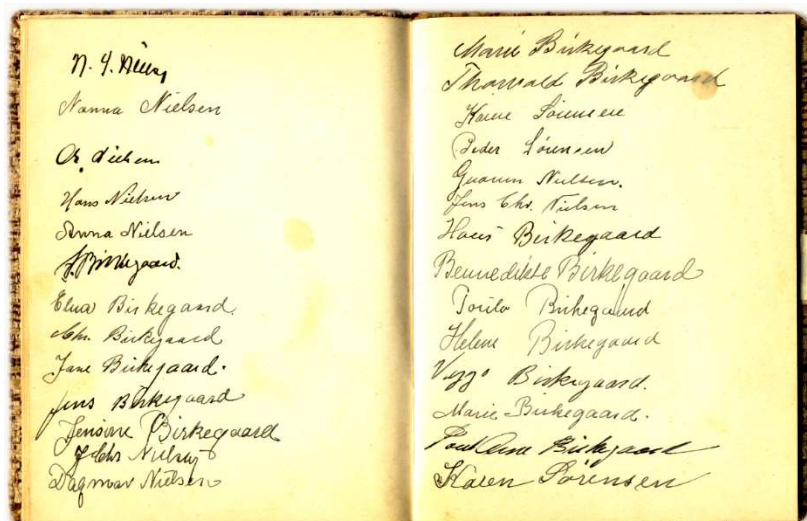 Nanna Nielsen
Hans Nielsen
Anna Nielsen
Birkegaard.
Elna Birkegaard.
Chr. Birkegaard
Jane Birkegaard.
Jens Birkegaard
Jensine Birkegaard
J. Chr Nielsen
Dagmar Nielsen
Marie Birkegaard
Thorvald Birkegaard
Karne Sørensen
Peder Sørensen
Nielsen.
Jens Chr. Nielsen
Hans Birkegaard
Bennedikte Birkegaard
Birkegaard
Helene Birkegaard
Viggo Birkegaard.
Marie Birkegaard.
Birkegaard
Karen Sørensen